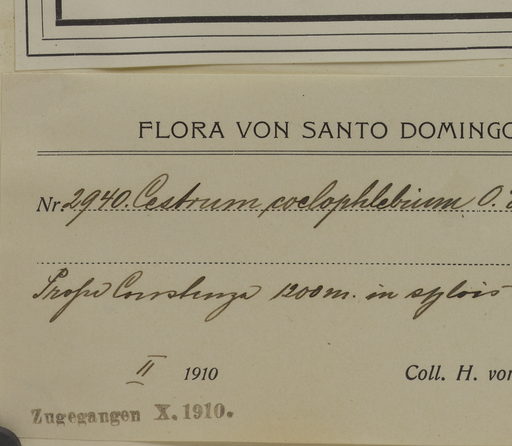 FLORA VON SANTO DOMINGO
Nr. 2940. Cestrum coelophlebium O.
Prope Constanza 1200 m. in sylvis
II 1910 Coll. H. von
Zugegangen X. 1910.